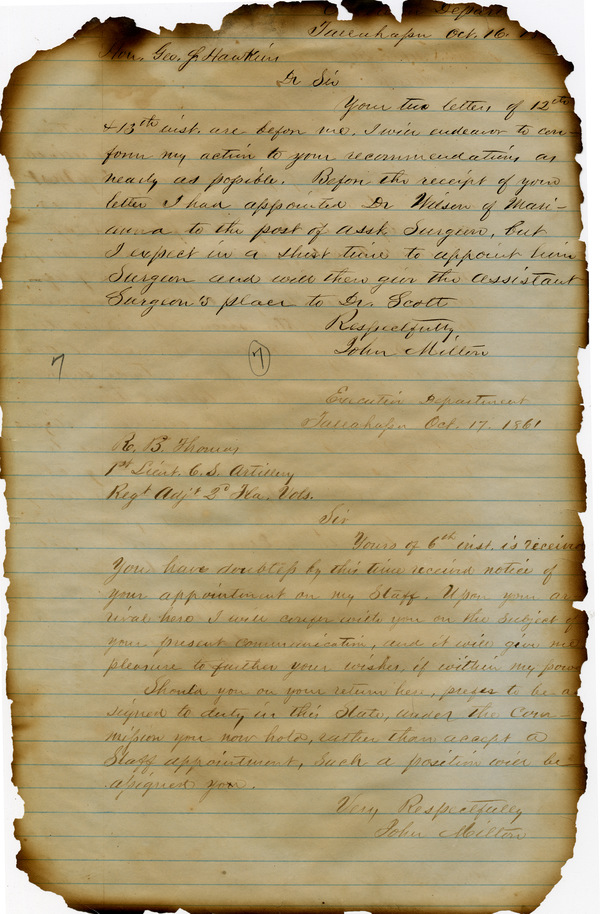 Depart
Tallahassee Oct. 16.
Hon. Geo. S. Hawkins
Dr Sir
Your two letters of 12th
& 13th inst. are before me. I will endeavor to con-
form my action to your recommendations as
nearly as possible. Before the receipt of your
letter I had appointed Dr Wilson of Mari-
anna to the post of Asst. Surgeon, but
I expect in a short time to appoint him
Surgeon and will then give the Assistant
Surgeon's place to Dr. Scott
Respectfully
John Milton
7 7
Executive Department
Tallahassee Oct. 17. 1861
R. B. Thomas
1st Lieut. C. S. Artillery
Regt Adjt 2d Fla. Vols.
Sir
Yours of 6th inst. is receive
You have doubtless by this time received notice of
your appointment on my Staff. Upon your ar
rival here I will confer with you on the subject of
your present communication, and it will give me
pleasure to further your wishes, if within my pow
Should you on your return here, prefer to be a
signed to duty in this State, under the Com-
mission you now hold, rather than accept a
Staff appointment, such a position will be
assigned you.
Very Respectfully
John Milton